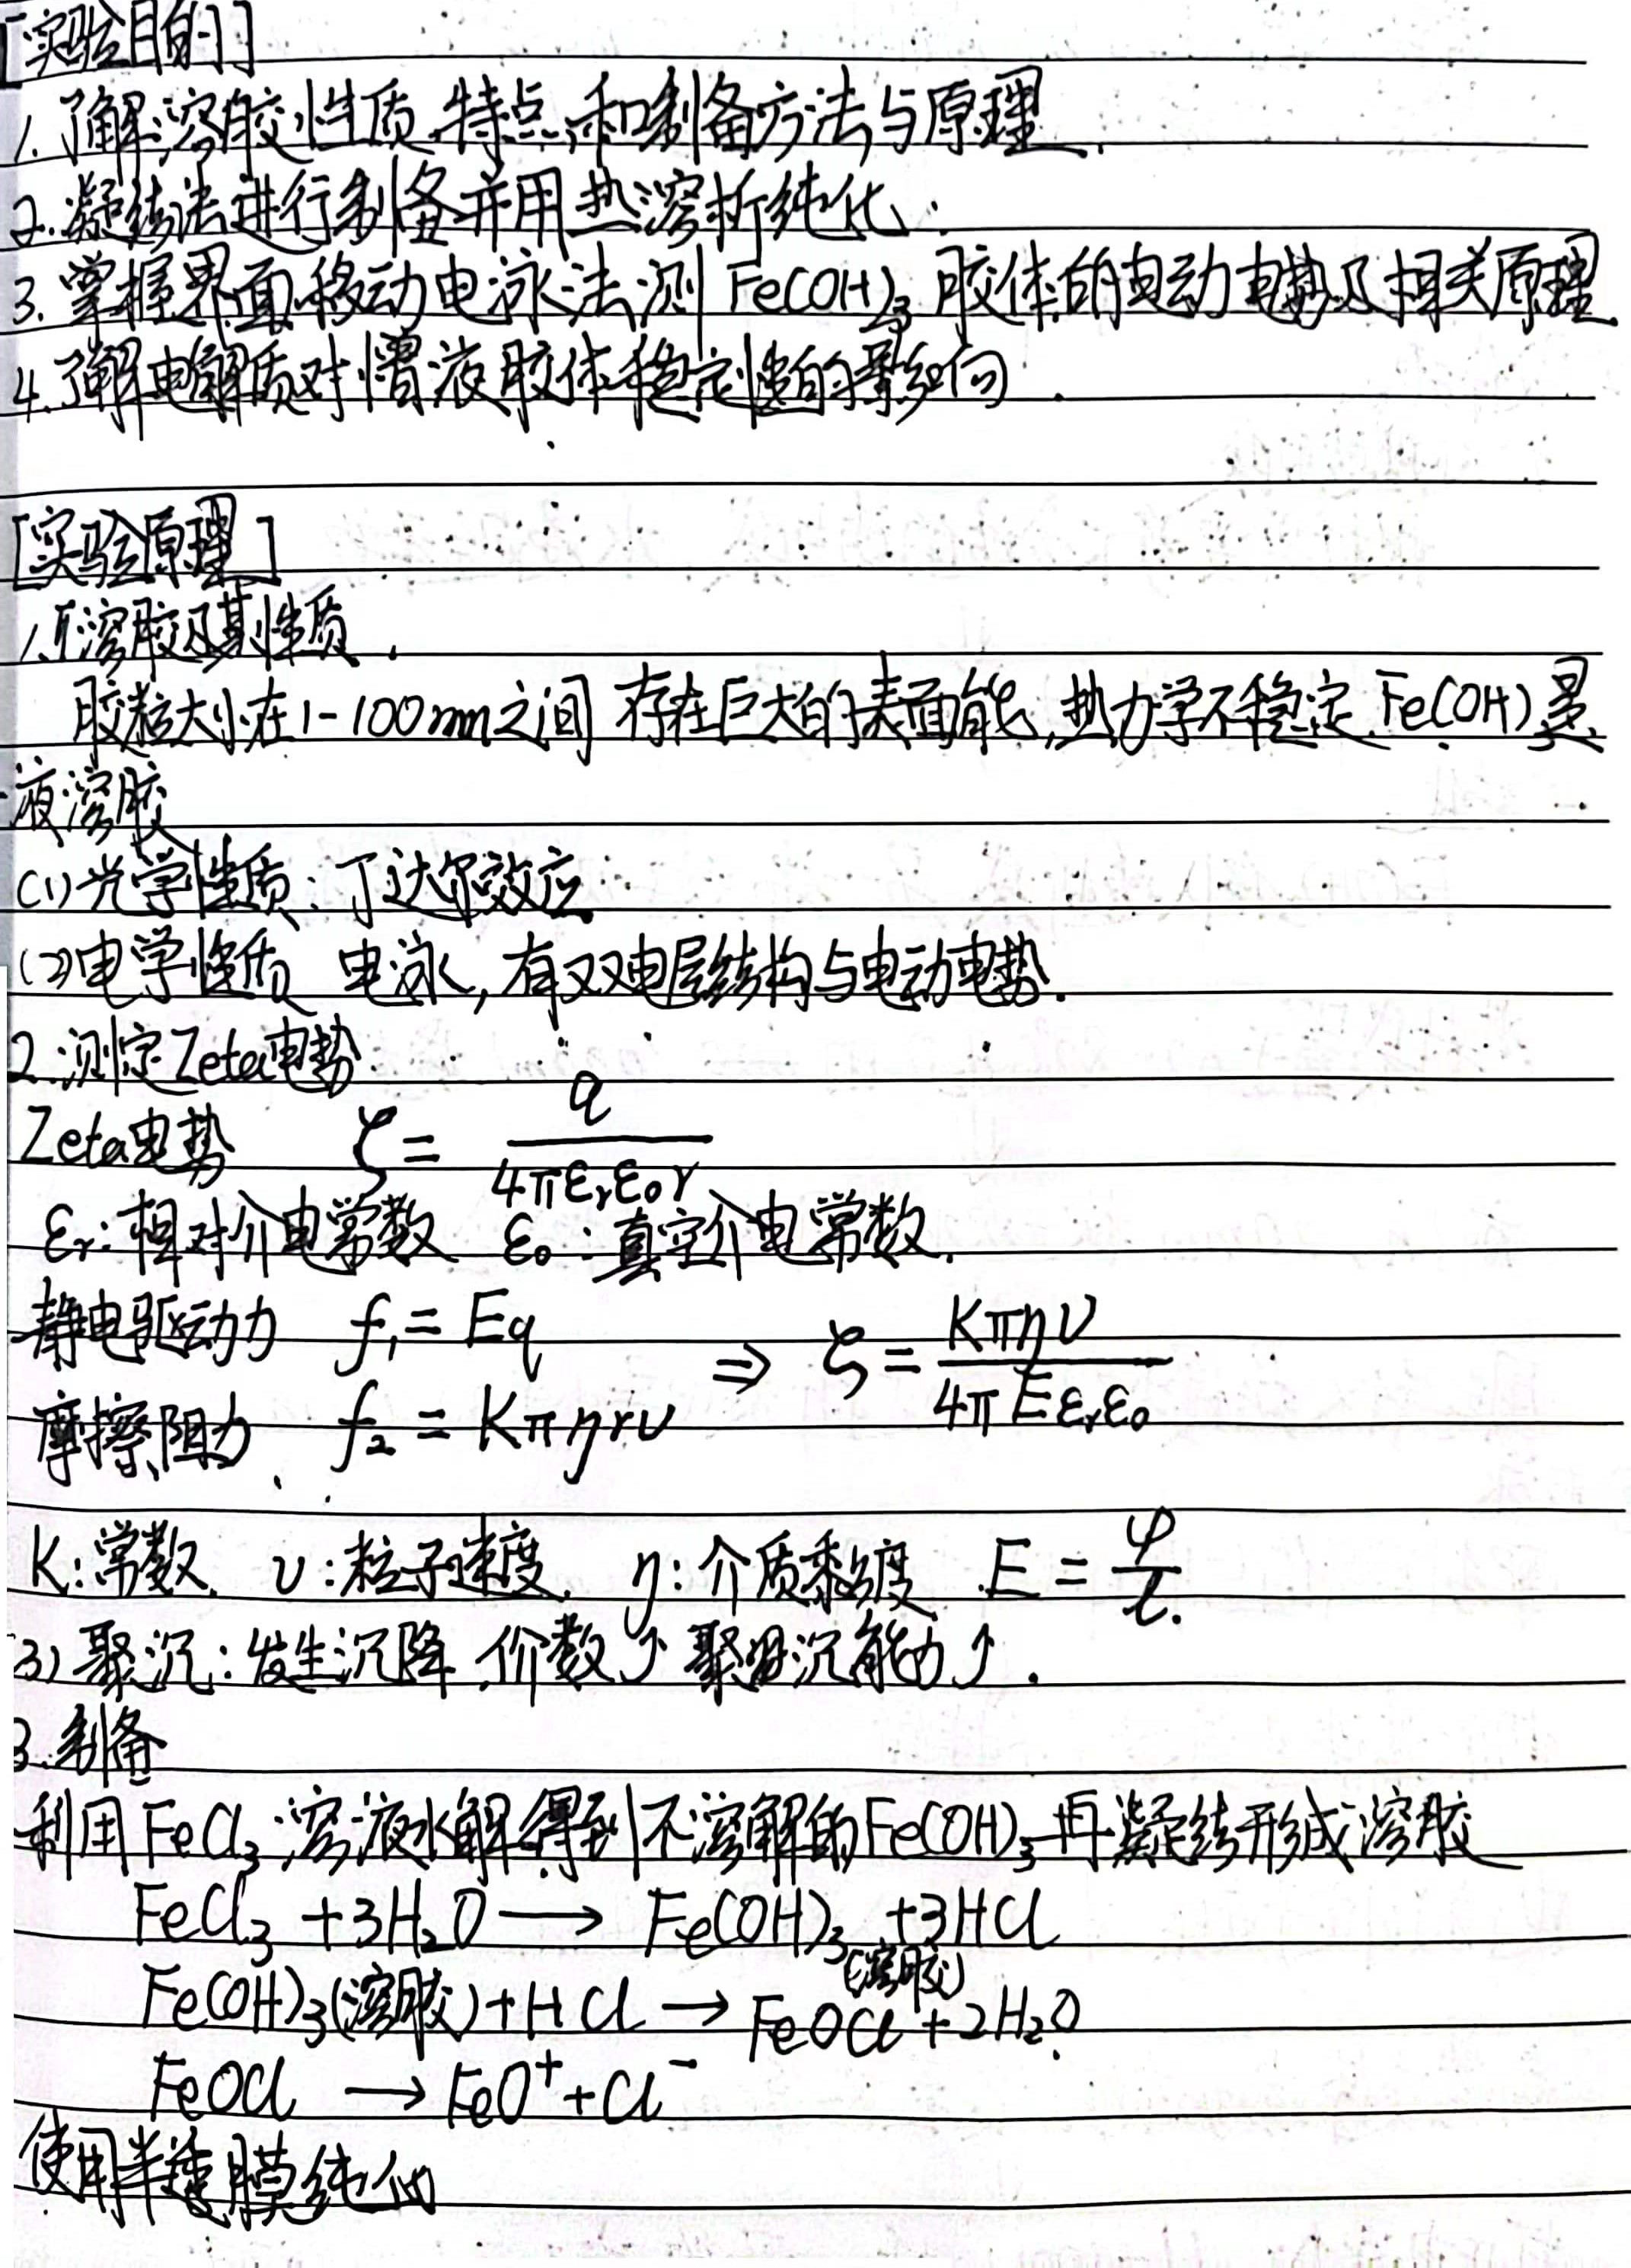 [实验目的]
1.了解溶胶性质、特点和制备方法与原理.
2.凝结法进行制备并用热溶析纯化.
3.掌握界面移动电泳法测Fe(OH)₃胶体的电动电势及相关原理
4.了解电解质对憎液胶体稳定性的影响.
[实验原理]
1.溶胶及其性质.
胶粒大小在1-100nm之间 存在巨大的表面能,热力学不稳定.Fe(OH)₃是
液溶胶
(1)光学性质:丁达尔效应
(2)电学性质 电泳,有双电层结构与电动电势.
2.测定Zeta电势.
Zeta电势 ζ = q / 4πεrε0r
εr:相对介电常数 ε0:真空介电常数.
静电驱动力 f₁ = Eq ⇒ ζ = Kπηυ / 4πEεrε0
摩擦阻力 f₂ = Kπηrυ
K:常数. υ:粒子速度. η:介质黏度 E = φ / l.
(3)聚沉:发生沉降,价数↑聚沉能力↑.
3.制备
利用FeCl₃溶液水解得到不溶解的Fe(OH)₃再凝结形成溶胶
FeCl₃ + 3H₂O → Fe(OH)₃(溶胶) + 3HCl
Fe(OH)₃(溶胶) + HCl → FeOCl + 2H₂O
FeOCl → FeO⁺ + Cl⁻
使用半透膜纯化